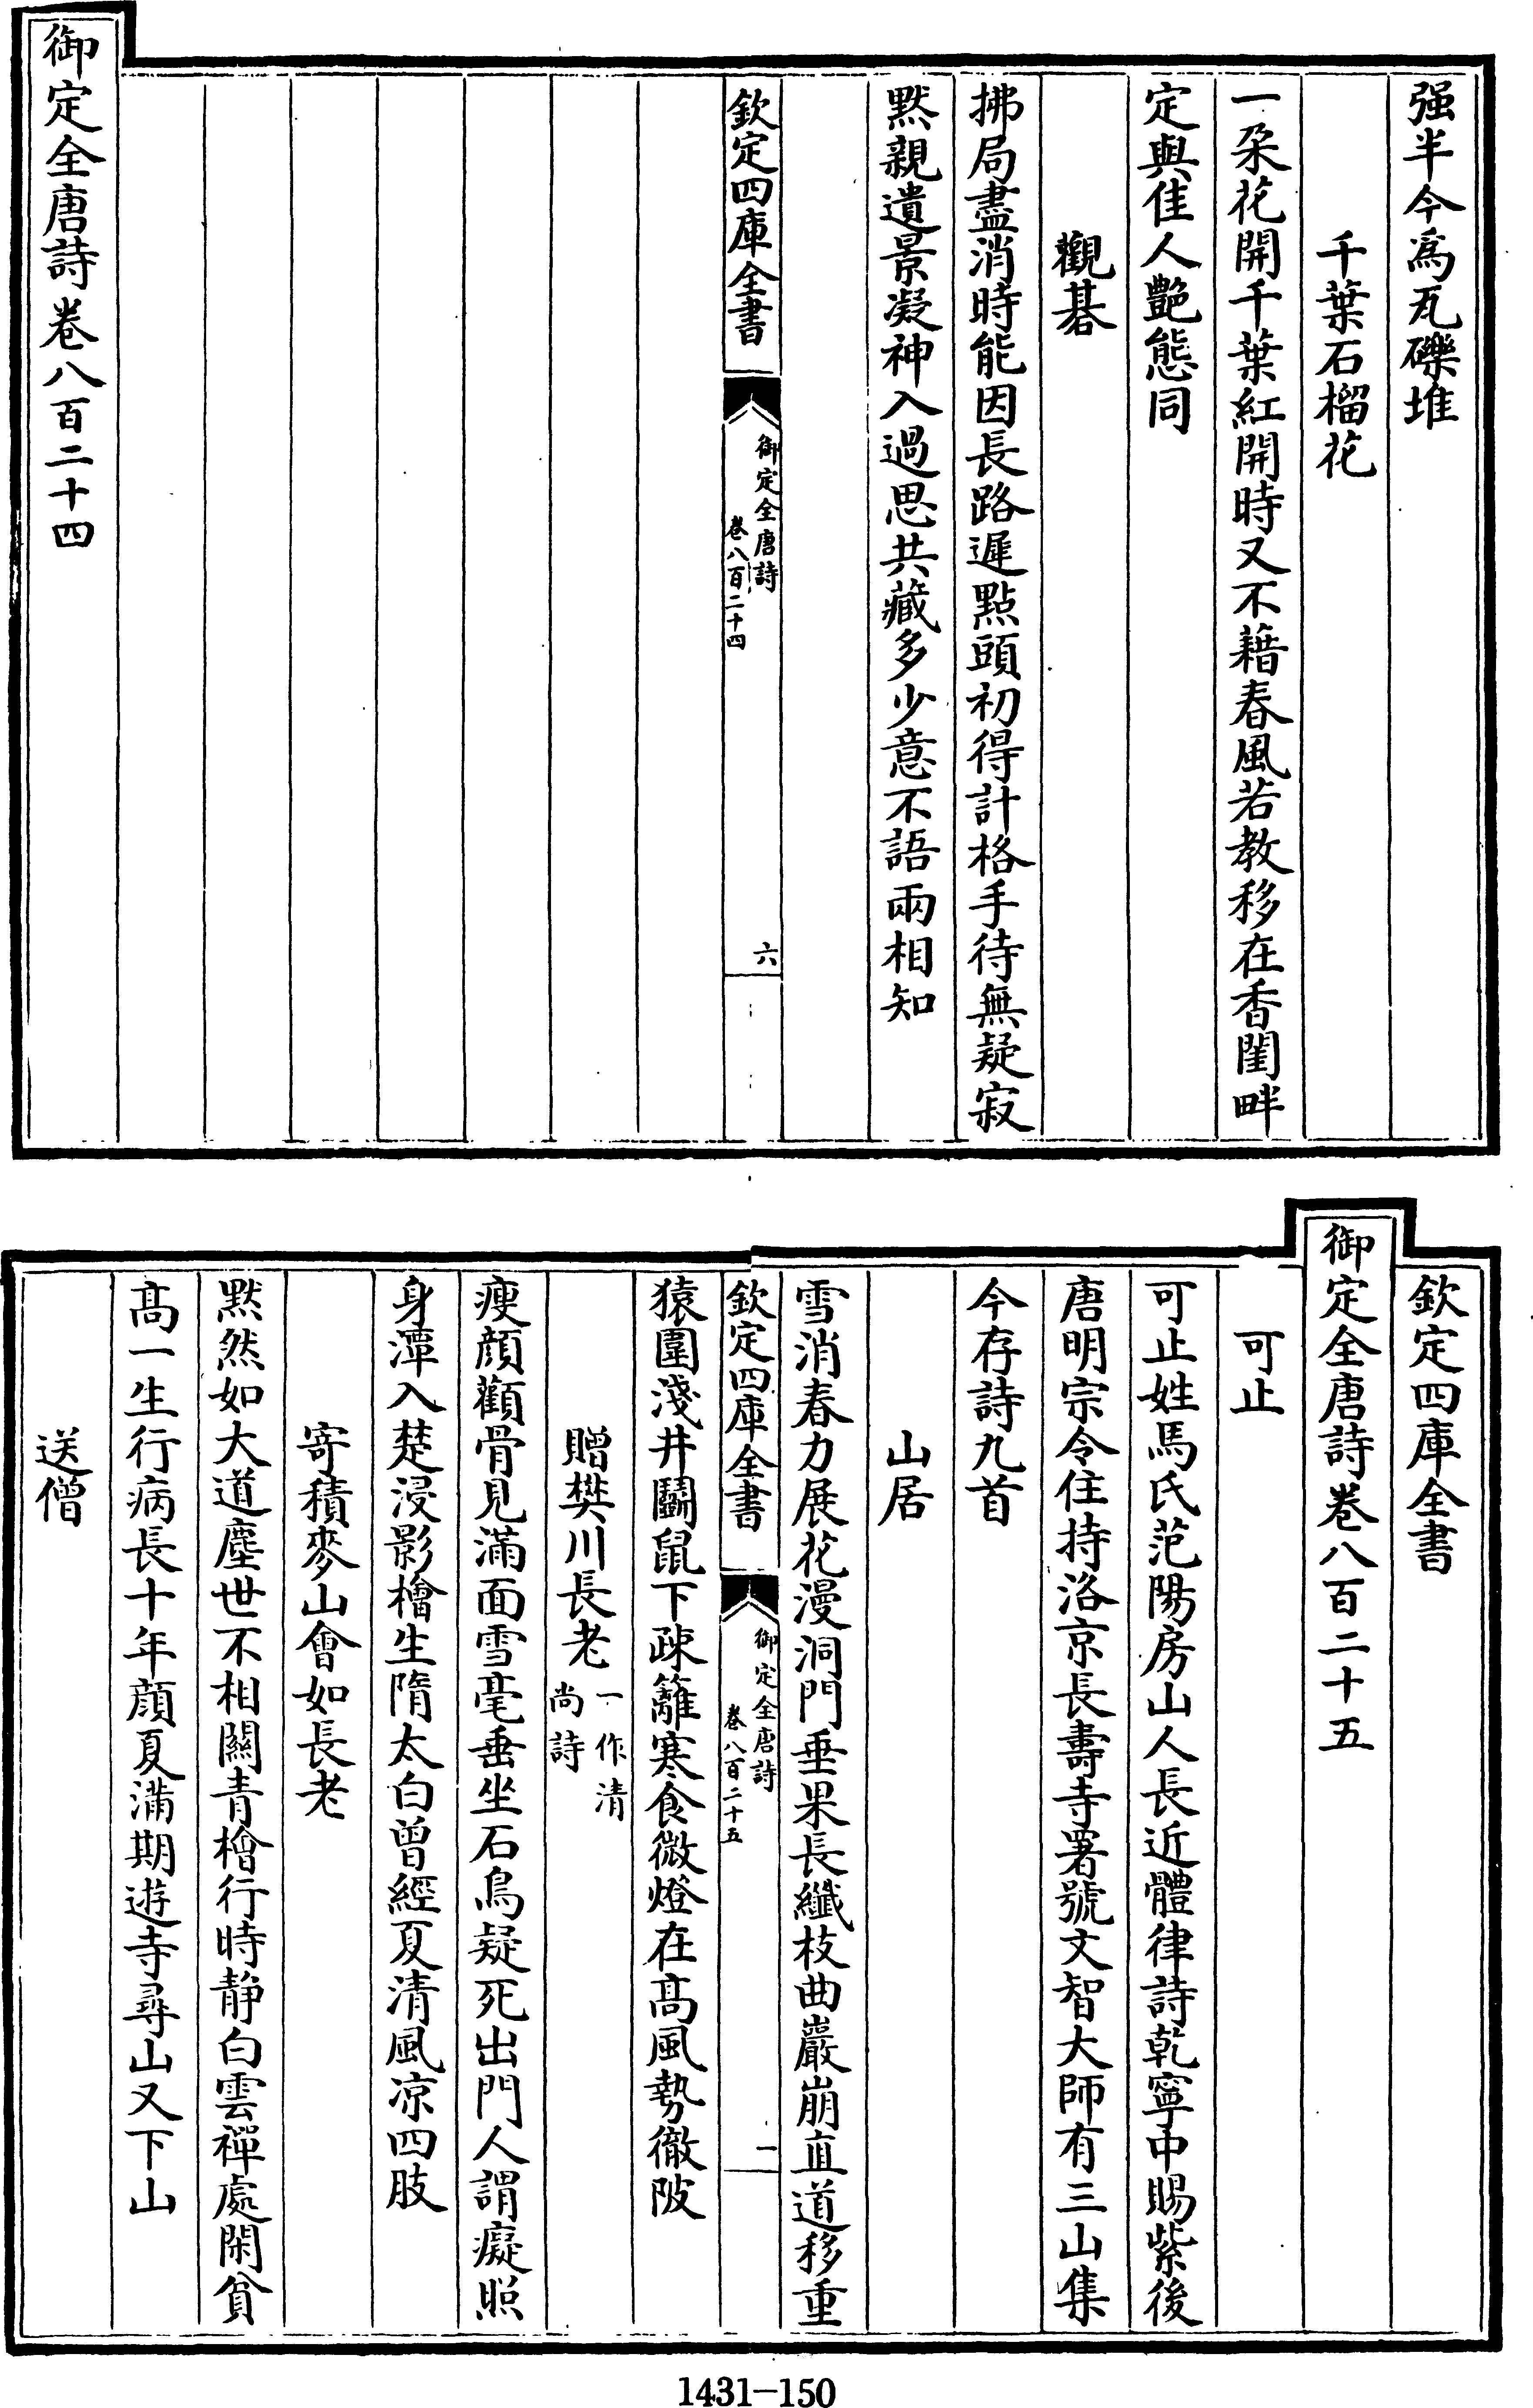 强半今爲瓦礫堆
千葉石榴花
一朶花開千葉紅開時又不藉春風若教移在香閨畔
定與佳人艷態同
觀碁
拂局盡消時能因長路遲點頭初得計格手待無疑寂
黙親遺景凝神入過思共藏多少意不語兩相知
欽定四庫全書
御定全唐詩
卷八百二十四
六
御定全唐詩卷八百二十四
欽定四庫全書
御定全唐詩卷八百二十五
可止
可止姓馬氏范陽房山人長近體律詩乾寧中賜紫後
唐明宗令住持洛京長壽寺署號文智大師有三山集
今存詩九首
山居
雪消春力展花漫洞門垂果長纎枝曲巖崩直道移重
欽定四庫全書
御定全唐詩
卷八百二十五
一
猿圍淺井鬭鼠下疎籬寒食微燈在髙風勢徹陂
贈樊川長老一作清尚詩
瘦顔顴骨見滿面雪毫垂坐石鳥疑死出門人謂癡照
身潭入楚浸影檜生隋太白曾經夏清風凉四肢
寄積麥山會如長老
黙然如大道塵世不相關青檜行時静白雲禪處閑貧
髙一生行病長十年顔夏滿期遊寺尋山又下山
送僧
1431-150